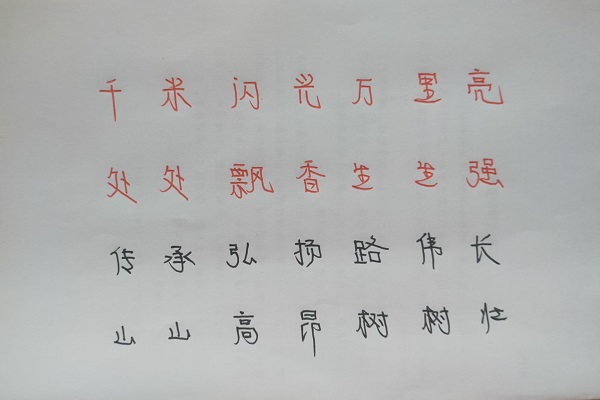 千米闪光万里亮
处处飘香生生强
传承弘扬路伟长
山山高昂树树壮